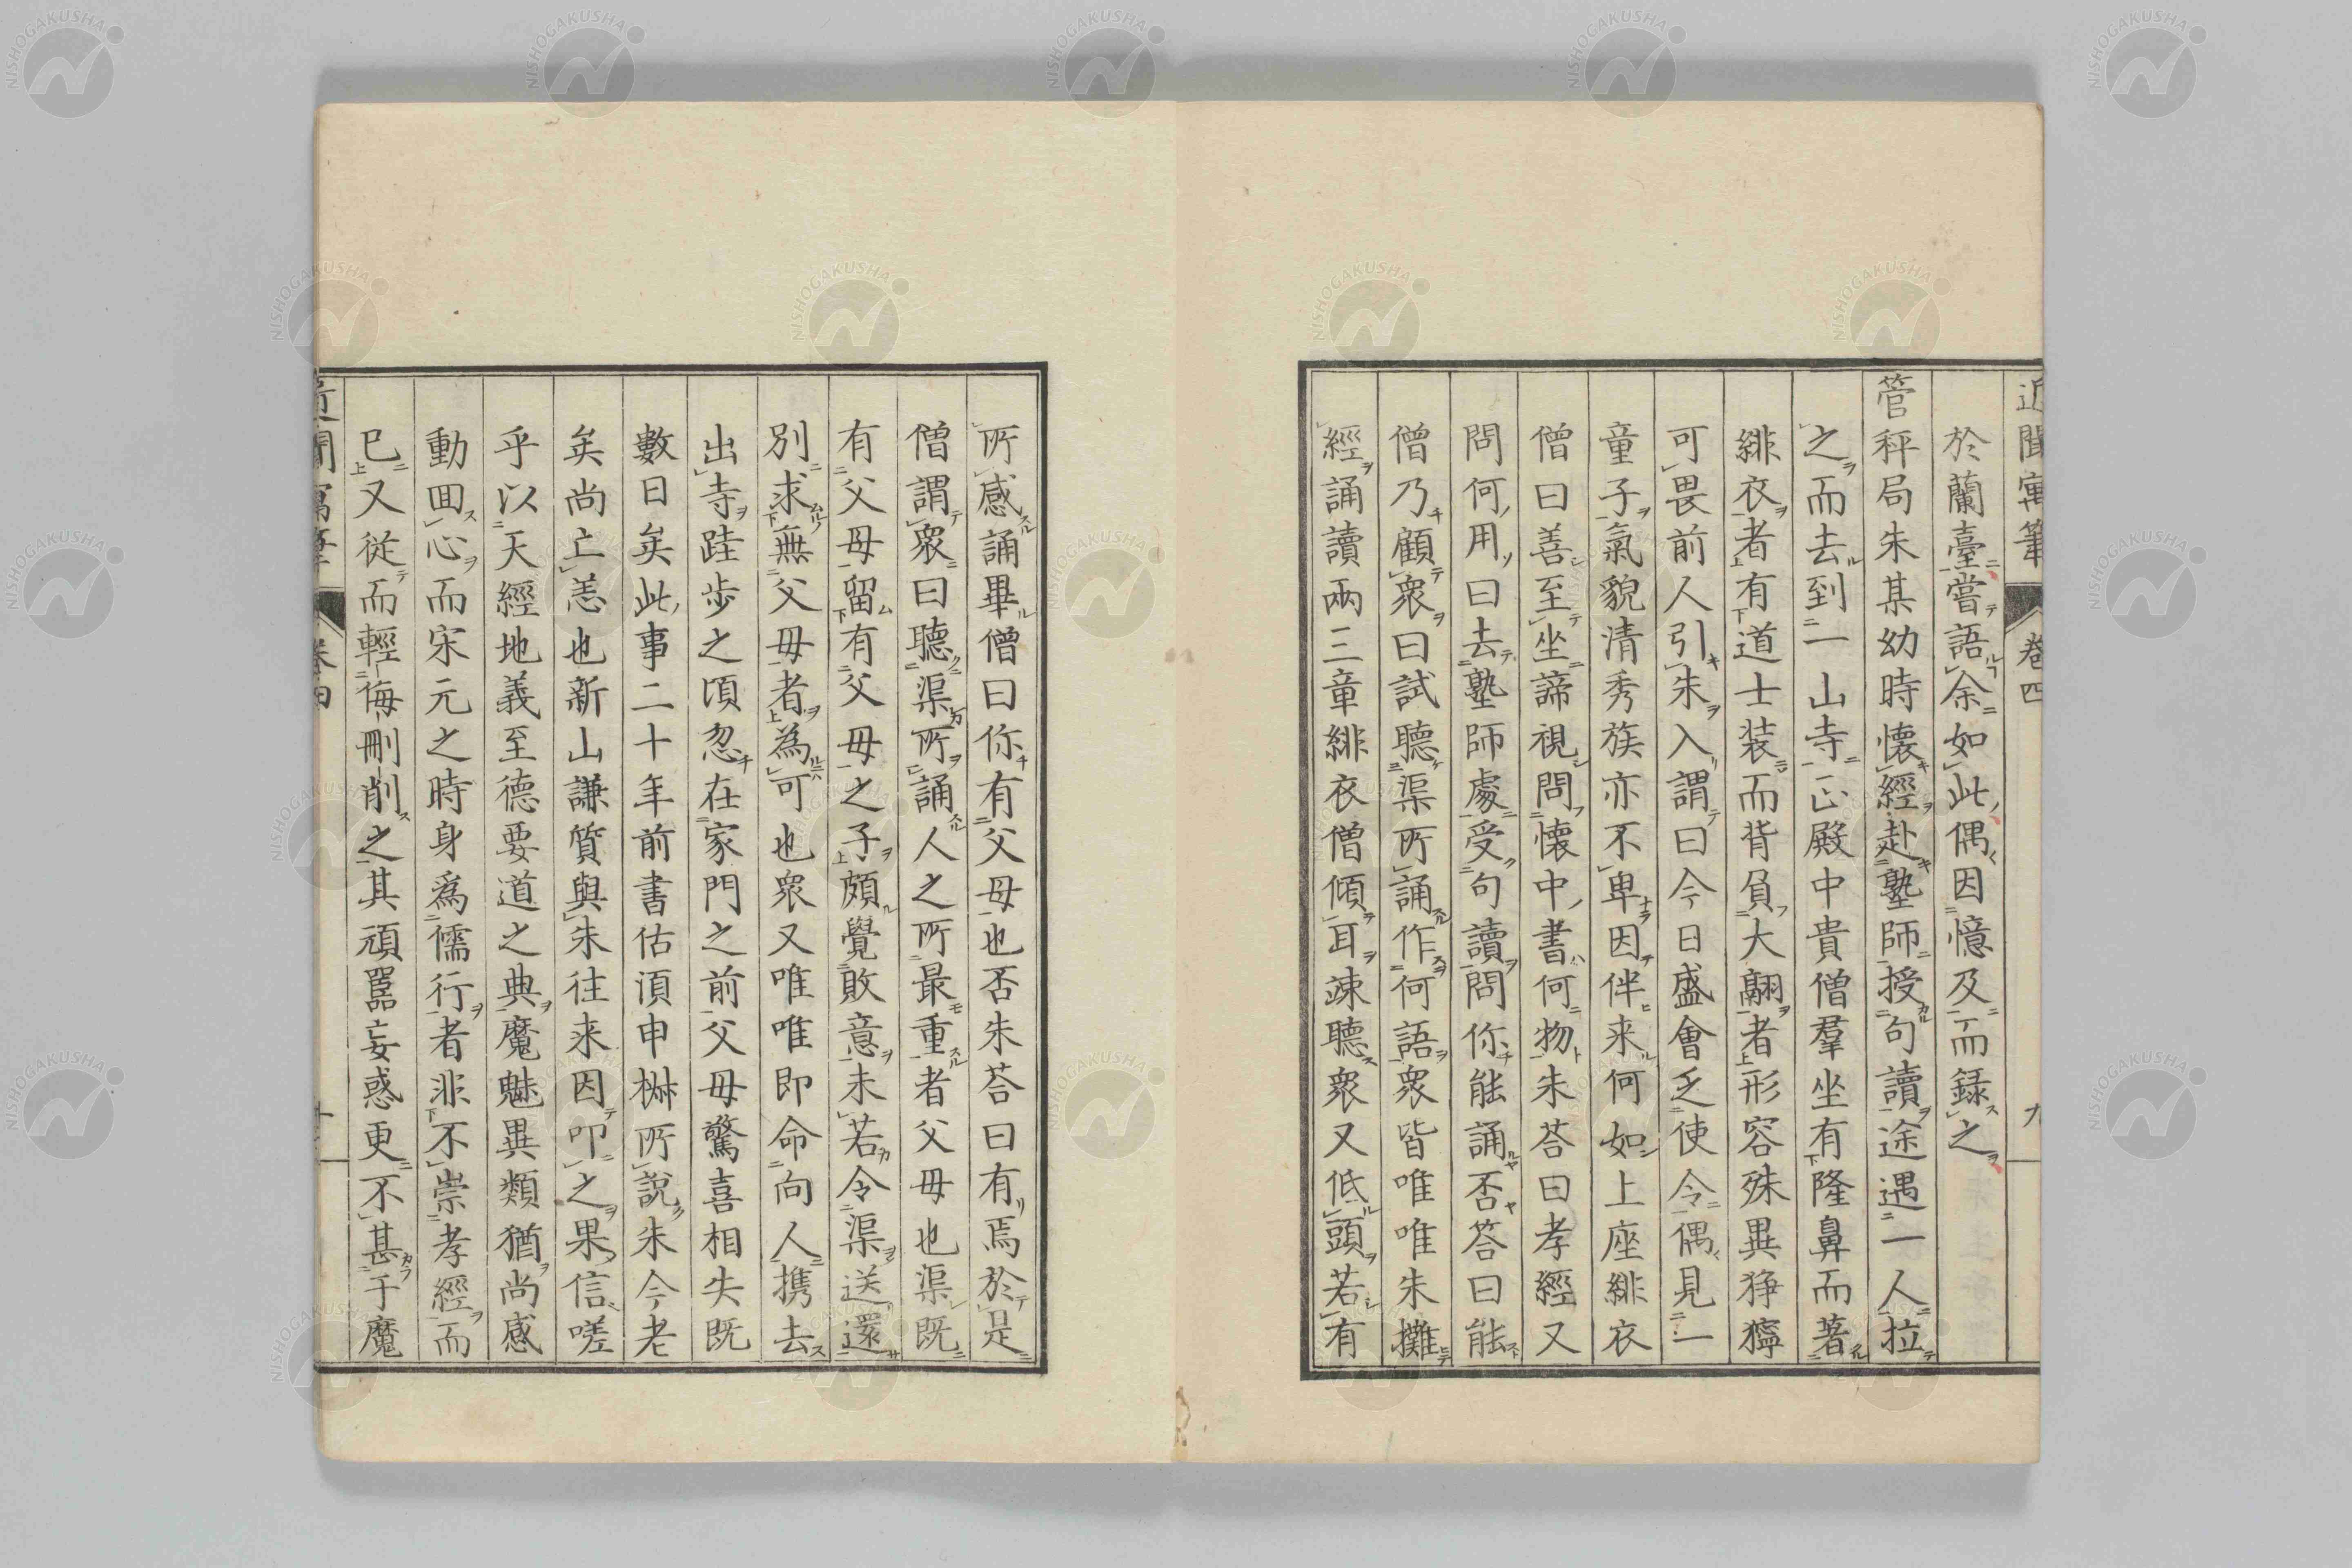 近聞寓筆 卷四 九
於蘭臺嘗語余如此偶因憶及而録之
管秤局朱某幼時懷經赴塾師授句讀途遇一人拉
之而去到一山寺正殿中貴僧羣坐有隆鼻而著
緋衣者有道士装而背負大翮者形容殊異猙獰
可畏前人引朱入謂曰今日盛會乏使令偶見一
童子氣貌清秀族亦不卑因伴来何如上座緋衣
僧曰善至坐諦視問懷中書何物朱荅曰孝經又
問何用曰去塾師處受句讀問你能誦否荅曰能
僧乃顧衆曰試聽渠所誦作何語衆皆唯唯朱攤
經誦讀兩三章緋衣僧傾耳竦聽衆又低頭若有
所感誦畢僧曰你有父母也否朱荅曰有焉於是
僧謂衆曰聽渠所誦人之所最重者父母也渠既
有父母留有父母之子頗覺敗意未若令渠送還
別求無父母者為可也衆又唯唯即命向人携去
出寺跬步之頃忽在家門之前父母驚喜相失既
數日矣此事二十年前書估須申椕所說朱今老
矣尚亡恙也新山謙質與朱往来因叩之果信嗟
乎以天經地義至德要道之典魔魅異類猶尚感
動囬心而宋元之時身爲儒行者非不崇孝經而
已又從而輕侮刪削之其頑嚚妄惑更不甚于魔
近聞寓筆 卷四